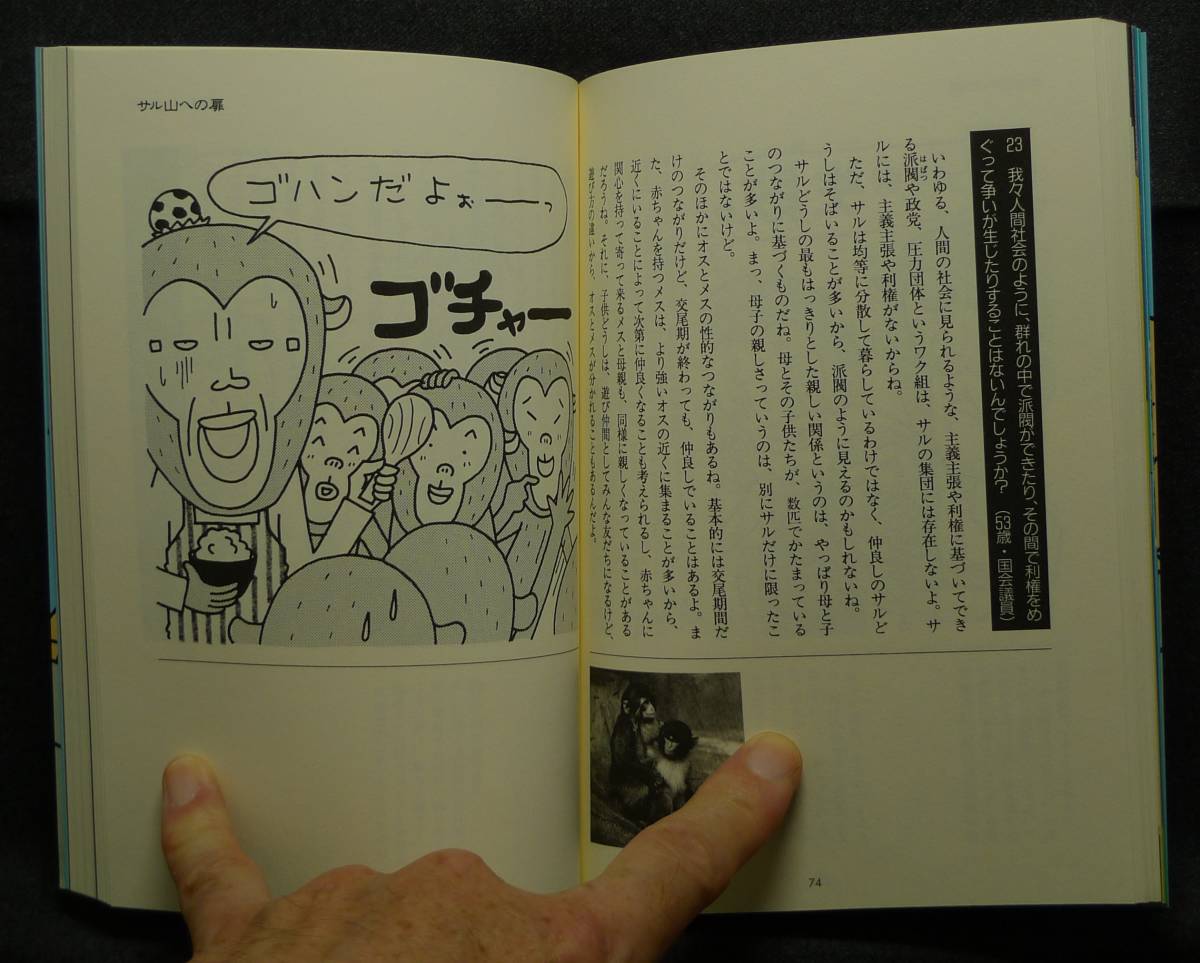 23 我々人間社会のように、群れの中で派閥ができたり、その間で利権をめ
ぐって争いが生じたりすることはないんでしょうか? (53歳・国会議員)
いわゆる、人間の社会に見られるような、主義主張や利権に基づいてでき
る派閥や政党、圧力団体というワク組は、サルの集団には存在しないよ。サ
はばつ
ルには、主義主張や利権がないからね。
ただ、サルは均等に分散して暮らしているわけではなく、仲良しのサルど
うしはそばいることが多いから、派閥のように見えるのかもしれないね。
サルどうしの最もはっきりとした親しい関係というのは、やっぱり母と子
のつながりに基づくものだね。母とその子供たちが、数匹でかたまっている
ことが多いよ。まっ、母子の親しさっていうのは、別にサルだけに限ったこ
とではないけど。
そのほかにオスとメスの性的なつながりもあるね。基本的には交尾期間だ
けのつながりだけど、交尾期が終わっても、仲良しでいることはあるよ。ま
た、赤ちゃんを持つメスは、より強いオスの近くに集まることが多いから、
近くにいることによって次第に仲良くなることも考えられるし、赤ちゃんに
関心を持って寄って来るメスと母親も、同様に親しくなっていることがある
だろうね。それに、子供どうしは、遊び仲間としてみんな友だちになるけど、
遊び方の違いから、オスとメスが分かれることもあるんだよ。
74
サル山への扉
ゴハンだよぉーーっ
ゴチャー